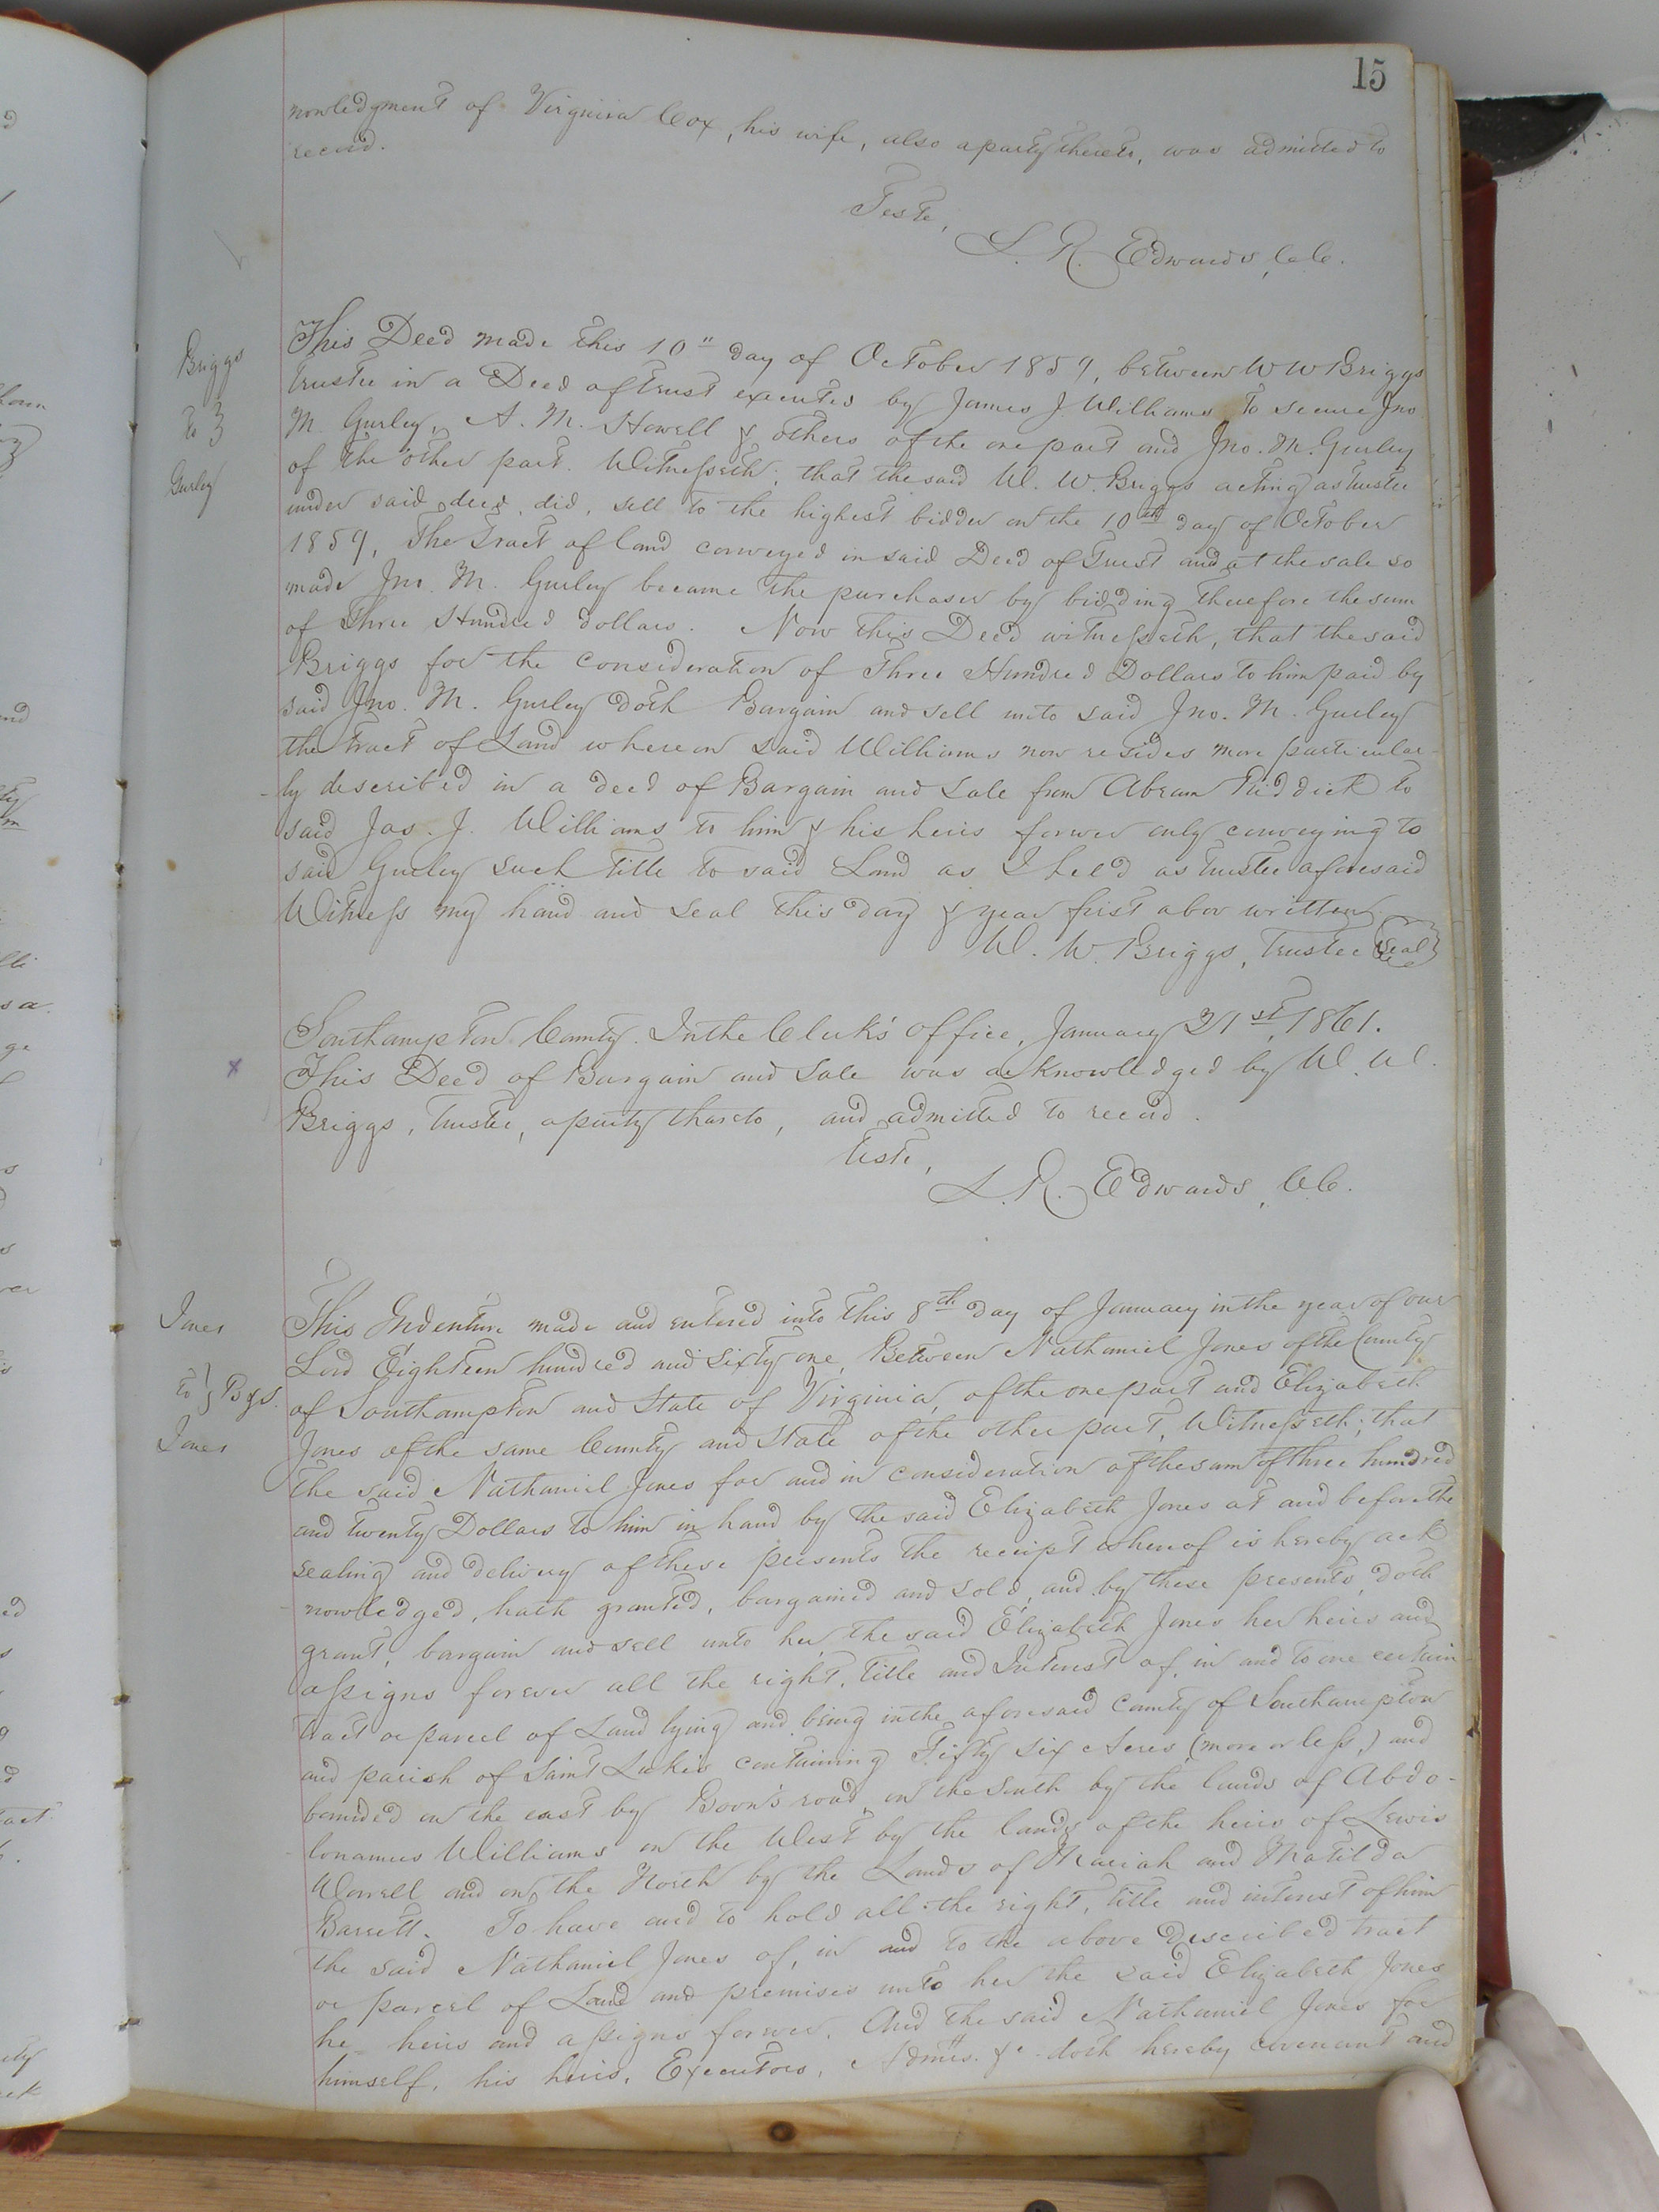 15
nowledgment of Virginia Cox, his wife, also a party thereto, was admitted to
record.
Teste,
L. R. Edwards, C.C.
Briggs
to }
Gurley
This Deed made this 10" day of October 1859, between W W Briggs
trustee in a Deed of trust executed by James J Williams to secure Jno
M. Gurley, A. M. Howell & others of the one part and Jno. M. Gurley
of the other part. Witnesseth; that the said W. W. Briggs acting as trustee
under said deed, did, sell to the highest bidder on the 10th day of October
1859, The Tract of land conveyed in said Deed of Trust and at the sale so
made Jno. M. Gurley became the purchaser by bidding therefore the sum
of Three Hundred dollars. Now this Deed witnesseth, that the said
Briggs for the consideration of Three Hundred Dollars to him paid by
said Jno. M. Gurley doth Bargain and sell unto said Jno. M. Gurley
the tract of Land whereon said Williams now resides more particular-
ly described in a deed of Bargain and Sale from Abram Riddick to
said Jas. J. Williams to him & his heirs forever only conveying to
said Gurley such title to said Land as I held as trustee aforesaid
Witness my hand and seal this day & year first abov written
W. W. Briggs, Trustee Seal
Southampton County. In the Clerk's office, January 21st, 1861.
This Deed of Bargain and Sale was acknowledged by W. W.
Briggs, Trustee, a party thareto, and admitted to record.
Teste,
L. R. Edwards, C.C.
Jones
to } B&S.
Jones
This Indenture made and entered into this 8th day of January in the year of our
Lord Eighteen hundred and sixty one, Between Nathaniel Jones of the County
of Southampton and State of Virginia, of the one part and Elizabeth
Jones of the same County and State of the other part, Witnesseth; that
the said Nathaniel Jones for and in consideration of the sum of three hundred
and twenty Dollars to him in hand by the said Elizabeth Jones at and before the
sealing and delivery of these presents the receipt whereof is hereby ack
nowledged, hath granted, bargained and sold, and by these presents, doth
grant, bargain and sell unto her the said Elizabeth Jones her heirs and
assigns forever all the right, title and Interest of, in and to one certain
tract or parcel of Land lying and being in the aforesaid County of Southampton
and parish of Saint Lukes containing Fifty six Acres (more or less,) and
bounded on the east by Boon's road, on the South by the lands of Abdo-
lonamus Williams on the West by the lands of the heirs of Lewis
Worrell and on the North by the Lands of Mariah and Matilda
Barrett. To have and to hold all the right, title and interest of him
the said Nathaniel Jones of, in and to the above described tract
or parcel of Land and premises unto her the said Elizabeth Jones
he heirs and assigns forever. And the said Nathaniel Jones for
himself, his heirs, Executors, Admrs. &c. doth hereby covenant and